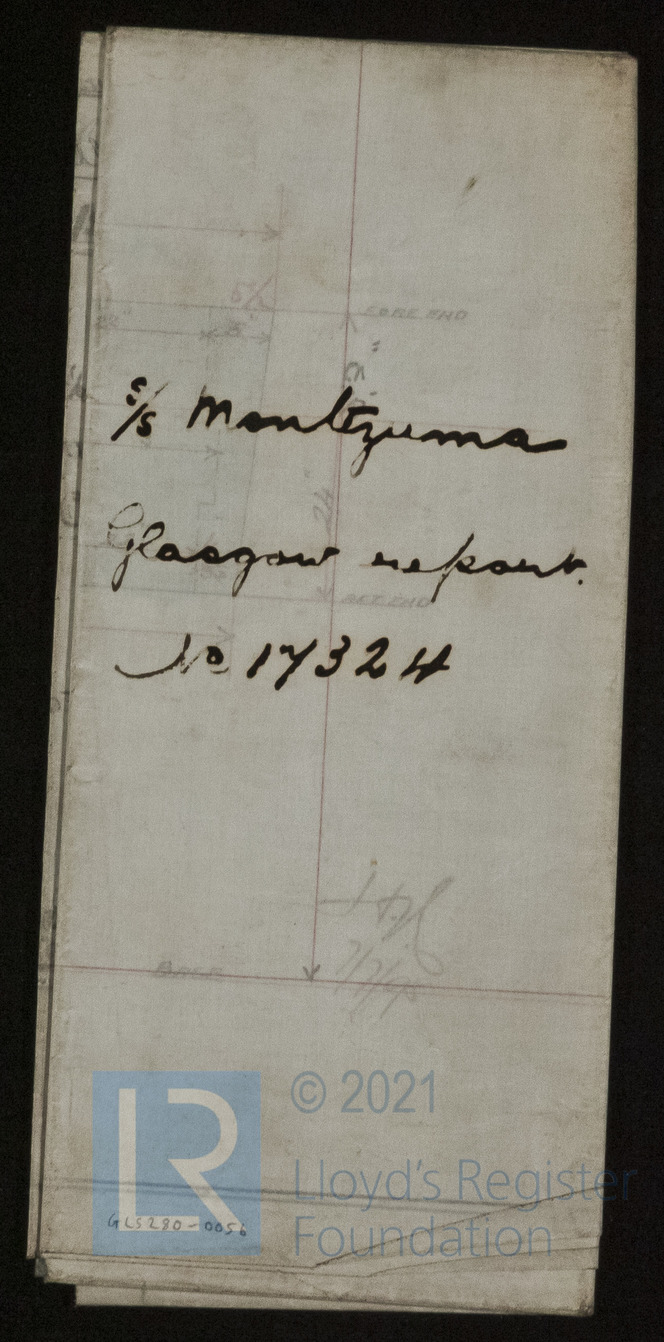 FORE END
s/s Montezuma
24
Glasgow report.
AFT END
No 17324
BASE
LR
© 2021
Lloyd's Register
Foundation
GLS280-0056